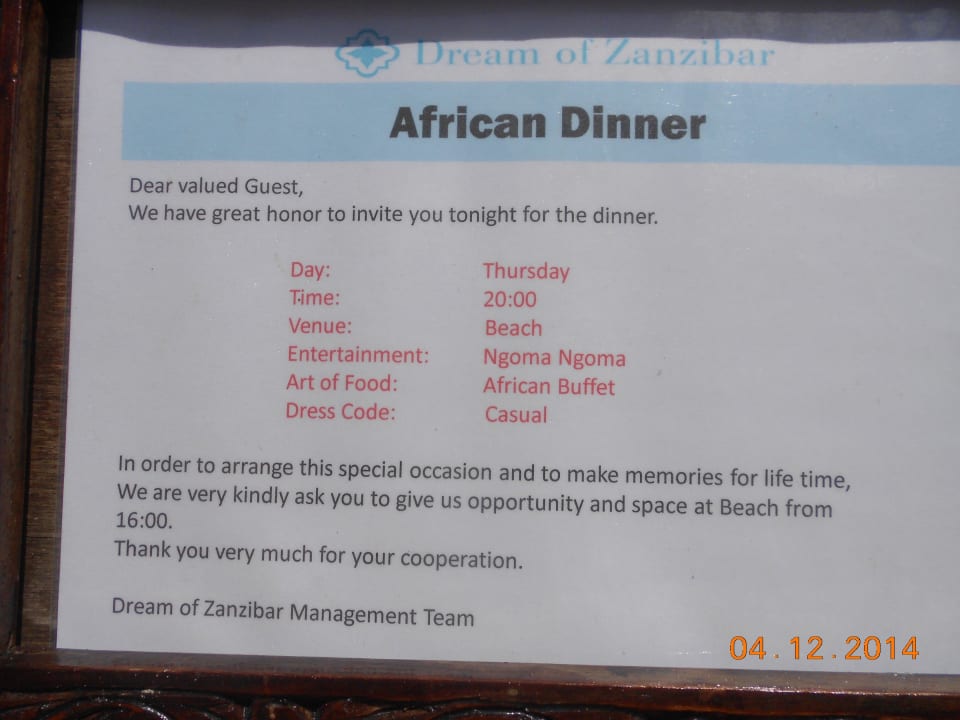 Dream of Zanzibar
African Dinner
Dear valued Guest,
We have great honor to invite you tonight for the dinner.
Day: Thursday
Time: 20:00
Venue: Beach
Entertainment: Ngoma Ngoma
Art of Food: African Buffet
Dress Code: Casual
In order to arrange this special occasion and to make memories for life time,
We are very kindly ask you to give us opportunity and space at Beach from
16:00.
Thank you very much for your cooperation.
Dream of Zanzibar Management Team
04.12.2014